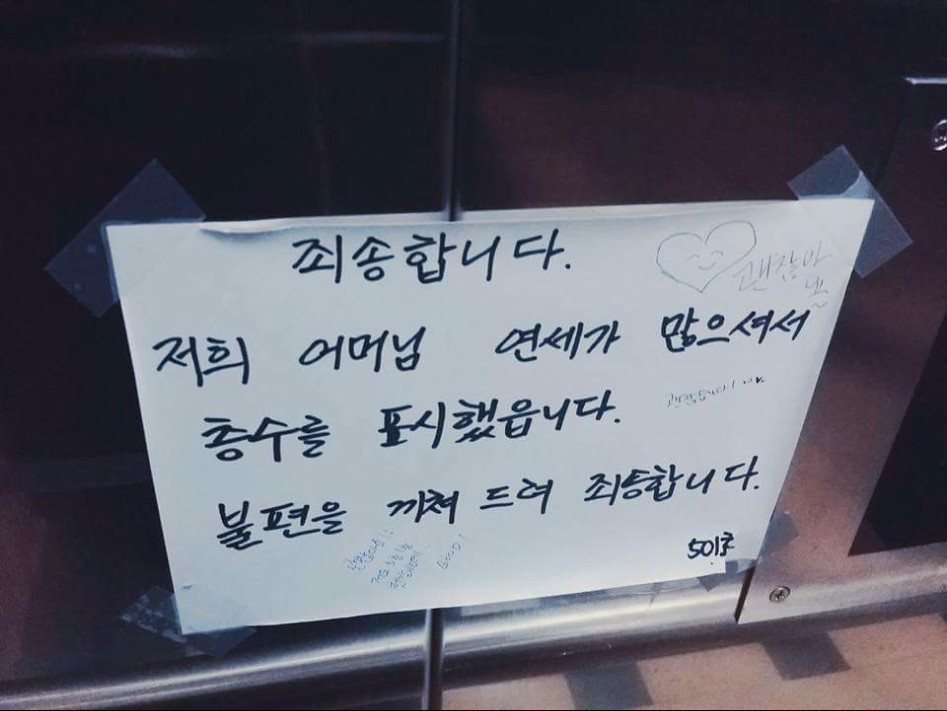 죄송합니다.
괜찮아
요~
저희 어머님 연세가 많으셔서
괜찮습니다!
층수를 표시했읍니다.
불편을 끼쳐 드려 죄송합니다.
GOOD!
501호